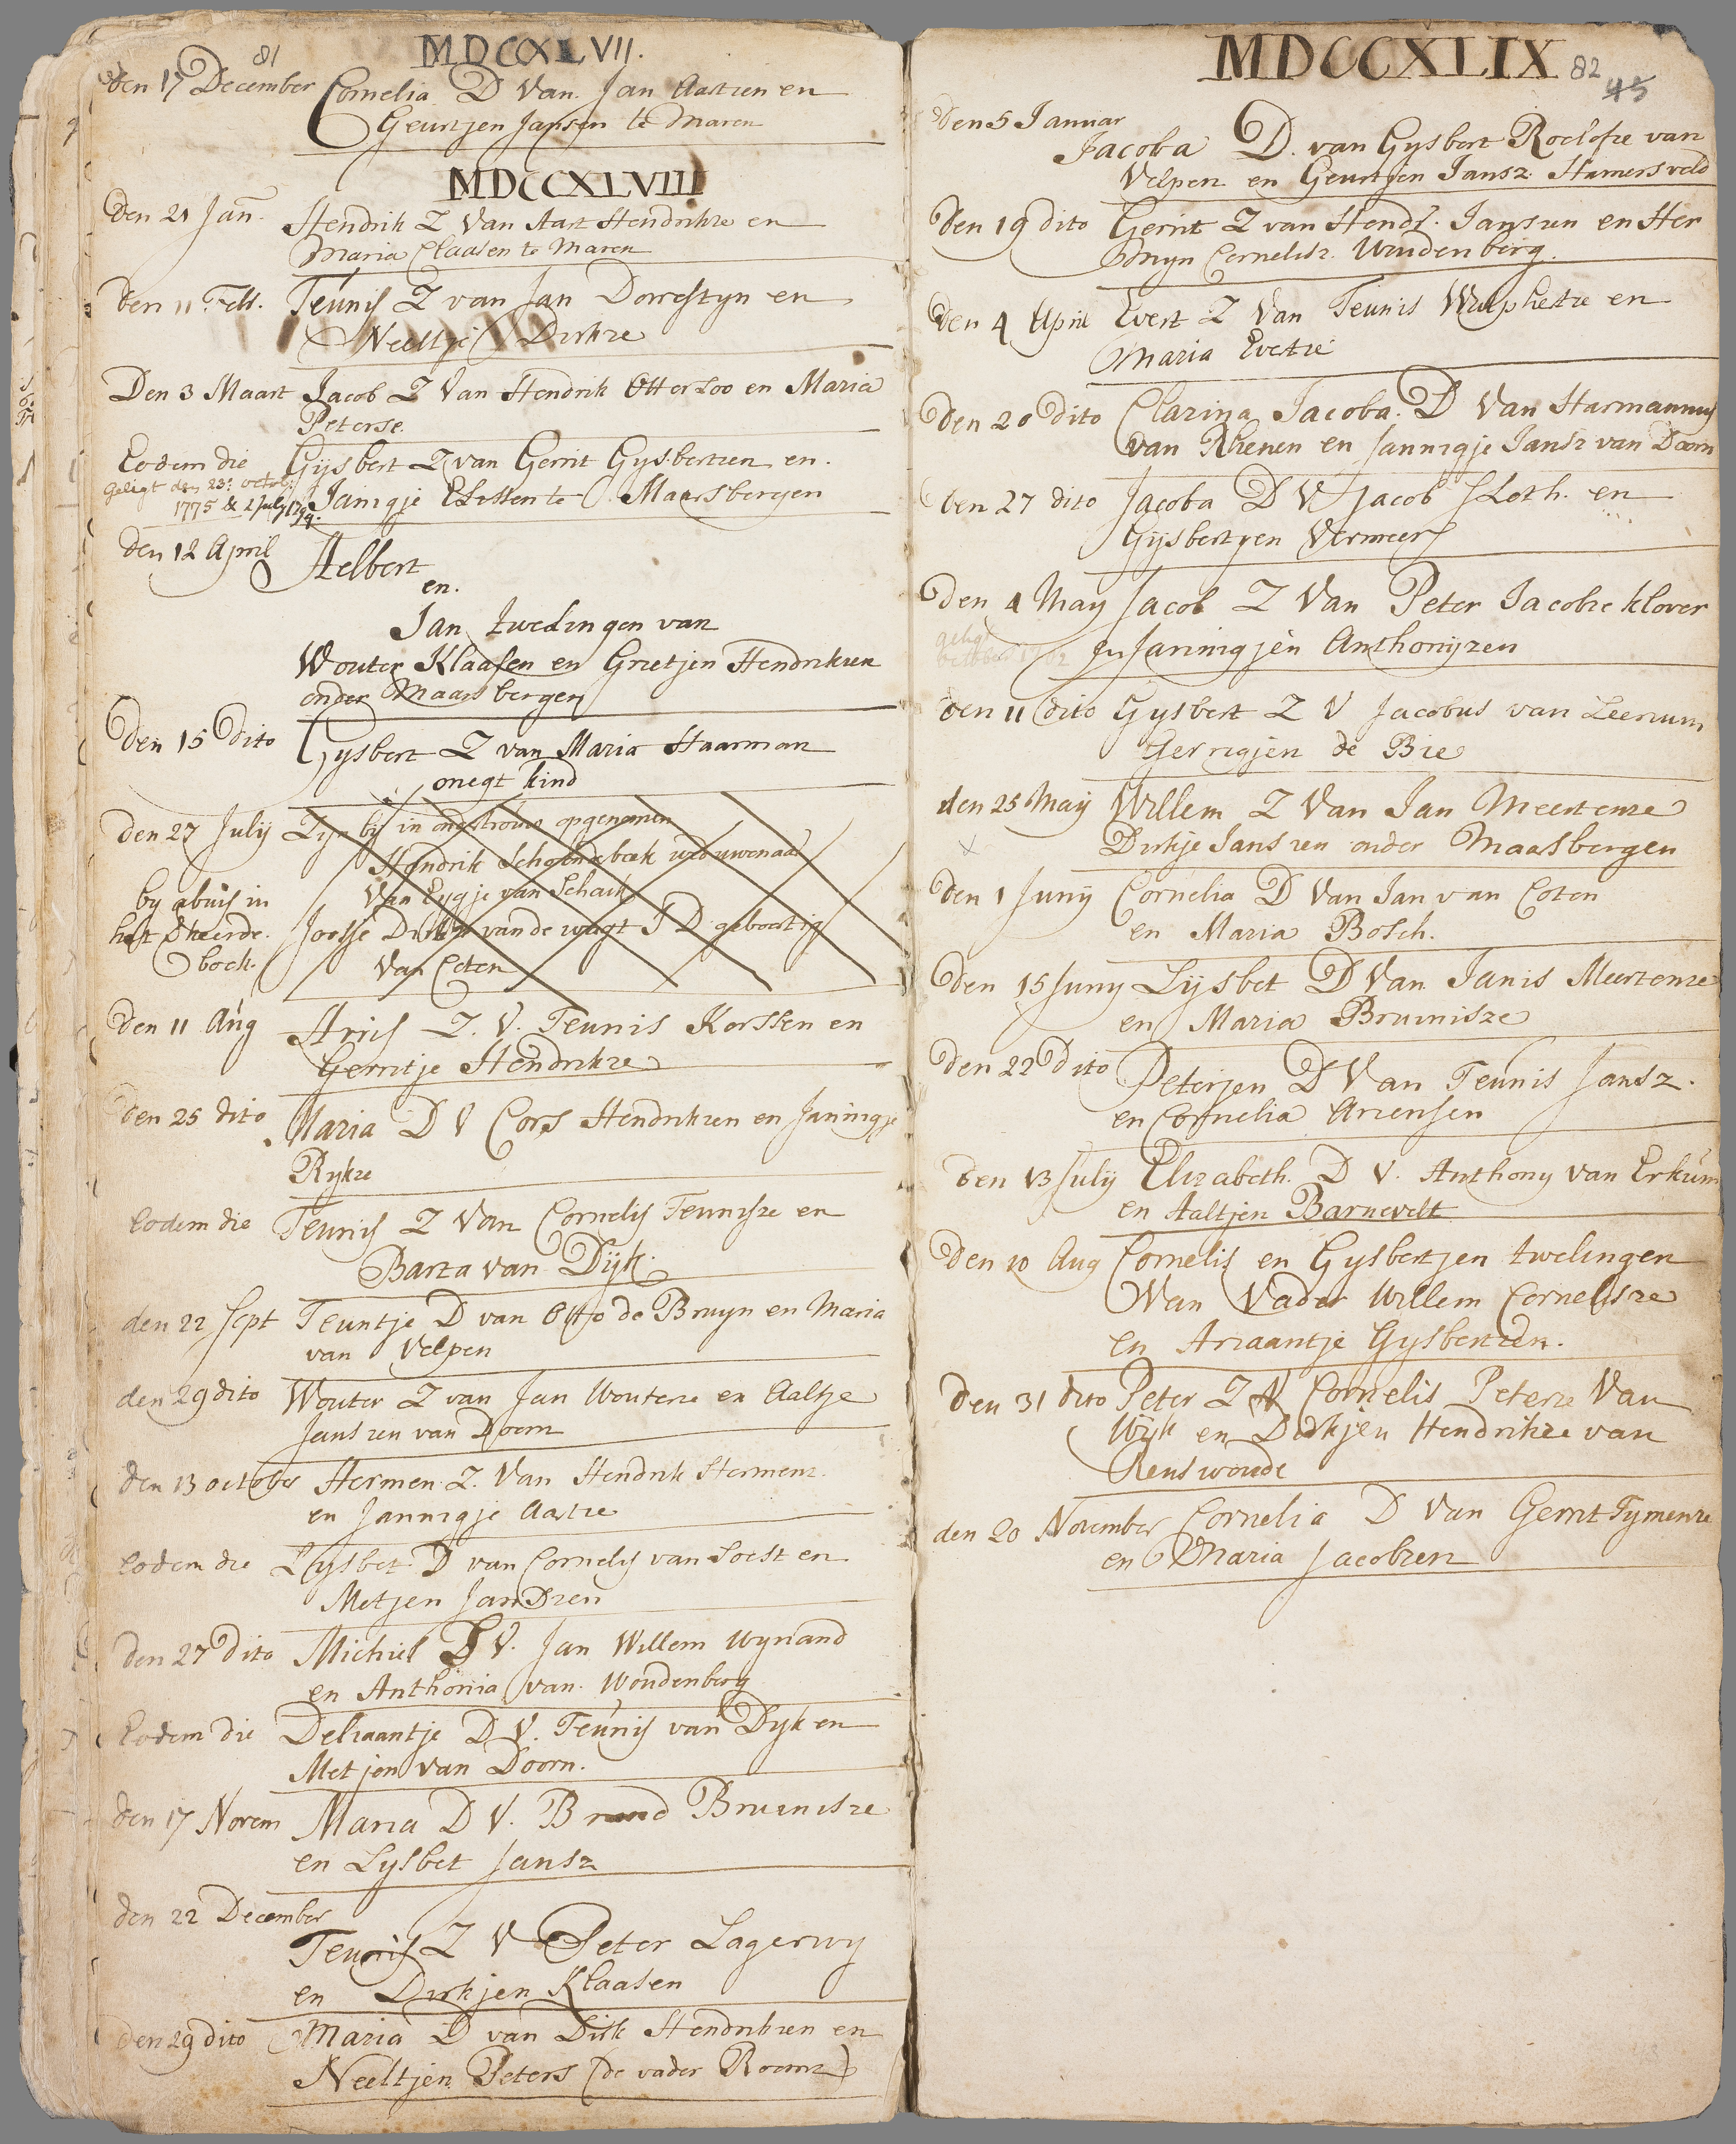 81
MDCCXLVII.
den 17 December Cornelia D van Jan Aartzen en
Geurtjen Jansen te Maren
MDCCXLVIII
den 21 Jan. Hendrik Z van Aart Hendrikze en
Maria Claasen te Maren
den 11 Feb. Teunis Z van Jan Dorrestyn en
Neeltje Dirkze
Den 3 Maart Jacob Z van Hendrik Otterloo en Maria
Peterse.
Eodem die Gijsbert Z van Gerrit Gysbertzen en
geligt den 23: octob: Janigje Elissen te Maarsbergen
1775 & 2 july 1794.
den 12 April Helbert
en.
Jan twelingen van
Wouter Klaasen en Grietjen Hendrikzen
onder Maarsbergen
Den 15 Dito Gysbert Z van Maria Haarman
onegt kind
den 27 July Zyn by in ondertrouw opgenomen
Hendrik Schoonderbeek weduwenaar
by abuis in Van Eygje van Schaik
het verkeerde Joosje Dirkze van de wagt J D geboortig
boek. Van Coten
Den 11 Aug Arris Z. V. Teunis Korssen en
Gerritje Hendrikze
Den 25 dito Maria D V Cors Hendrikzen en Janingje
Rykze
Eodem die Teunis Z van Cornelis Teunisze en
Barta van Dijk.
den 22 Sept Teuntje D van Otto de Bruyn en Maria
van Velpen
den 29 dito Wouter Z van Jan Wouterze en Aaltje
Janszen van Doorn
den 13 october Hermen Z. Van Hendrik Hermenz.
en Jannigje Aartze
Eodem die Lysbet D van Cornelis van Soest en
Metjen Jandzen
Den 27 Dito Michiel V. Jan Willem Wynand
en Anthonia van Woudenberg
Eodem die Deliaantje D V. Teunis van Dyk en
Metjen van Doorn.
den 17 Novem Maria D V. Brand Bruinisze
en Lysbet Jansz
den 22 December
Teunis Z V Peter Lagerwy
en Dirkjen Klaasen
Den 29 dito Maria D van Dirk Hendrikzen en
Neeltjen Peters (de vader Roomz)
MDCCXLIX 82
45
Den 5 Januar
Jacoba D. van Gysbert Roelofze van
Velpen en Geurtjen Jansz. Hamersveld
Den 19 dito Gerrit Z van Hendr. Jansen en Her
mijn Cornelisz. Woudenberg.
Den 4 April Evert Z Van Teunis Wulphertze en
Maria Evertze
Den 20 dito Clarina Jacoba. D Van Harmannus
van Rhenen en Jannigje Jansz van Doorn
Den 27 dito Jacoba D V Jacob Sloth. en
Gijsbertyen Vermeer
Den 4 May Jacob Z Van Peter Jacobze klover
geligt
en Janinigjen Anthonyzen
Den 11 dito Gysbert Z V Jacobus van Leersum
Gerrigjen de Bie
den 25 May Willem Z Van Jan Meertenze
x Dirkje Janszen onder Maarsbergen
Den 1 Juny Cornelia D Van Jan van Coten
en Maria Bosch.
Den 15 Juny Lijsbet D Van Janis Meertenze
en Maria Bruinisze
Den 22 Dito Peterjen D Van Teunis Jansz.
en Cornelia Ariensen
Den 13 July Elizabeth. D V. Anthony van Erkum
en Aaltjen Barnevelt
Den 10 Aug Cornelis en Gysbertjen twelingen
Van Vader Willem Cornelisze
en Ariaantje Gysbertzen.
Den 31 dito Peter Z V Cornelis Peterze Van
Wijk en Dirkjen Hendrikze van
Renswoude
den 20 November Cornelia D Van Gerrit Tymenze
en Maria Jacobzen